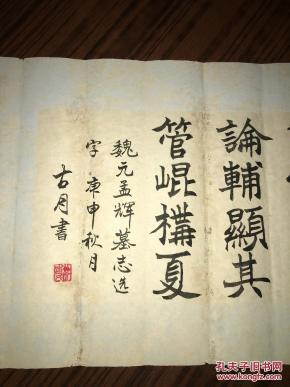 論輔顯其
管崐構夏
魏元孟輝墓志选
字 庚申秋月
古月書
孔夫子旧书网